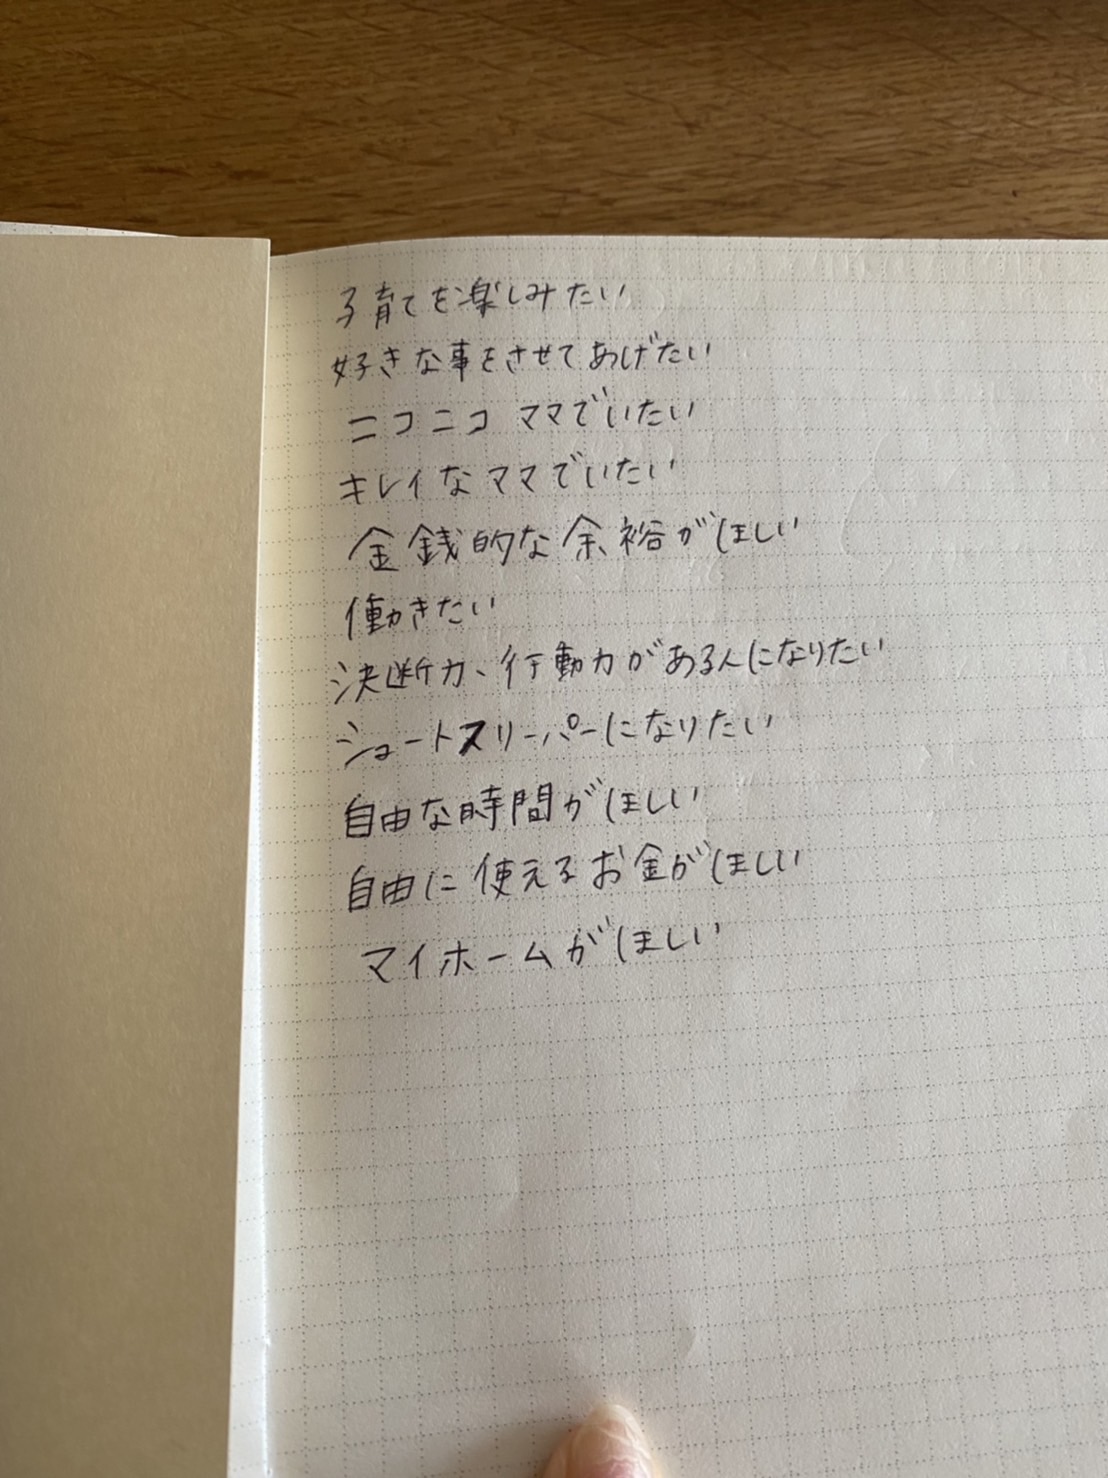 子育てを楽しみたい
好きな事をさせてあげたい
ニコニコママでいたい
キレイなママでいたい
金銭的な余裕がほしい
働きたい
決断力、行動力がある人になりたい
ショートスリーパーになりたい
自由な時間がほしい
自由に使えるお金がほしい
マイホームがほしい